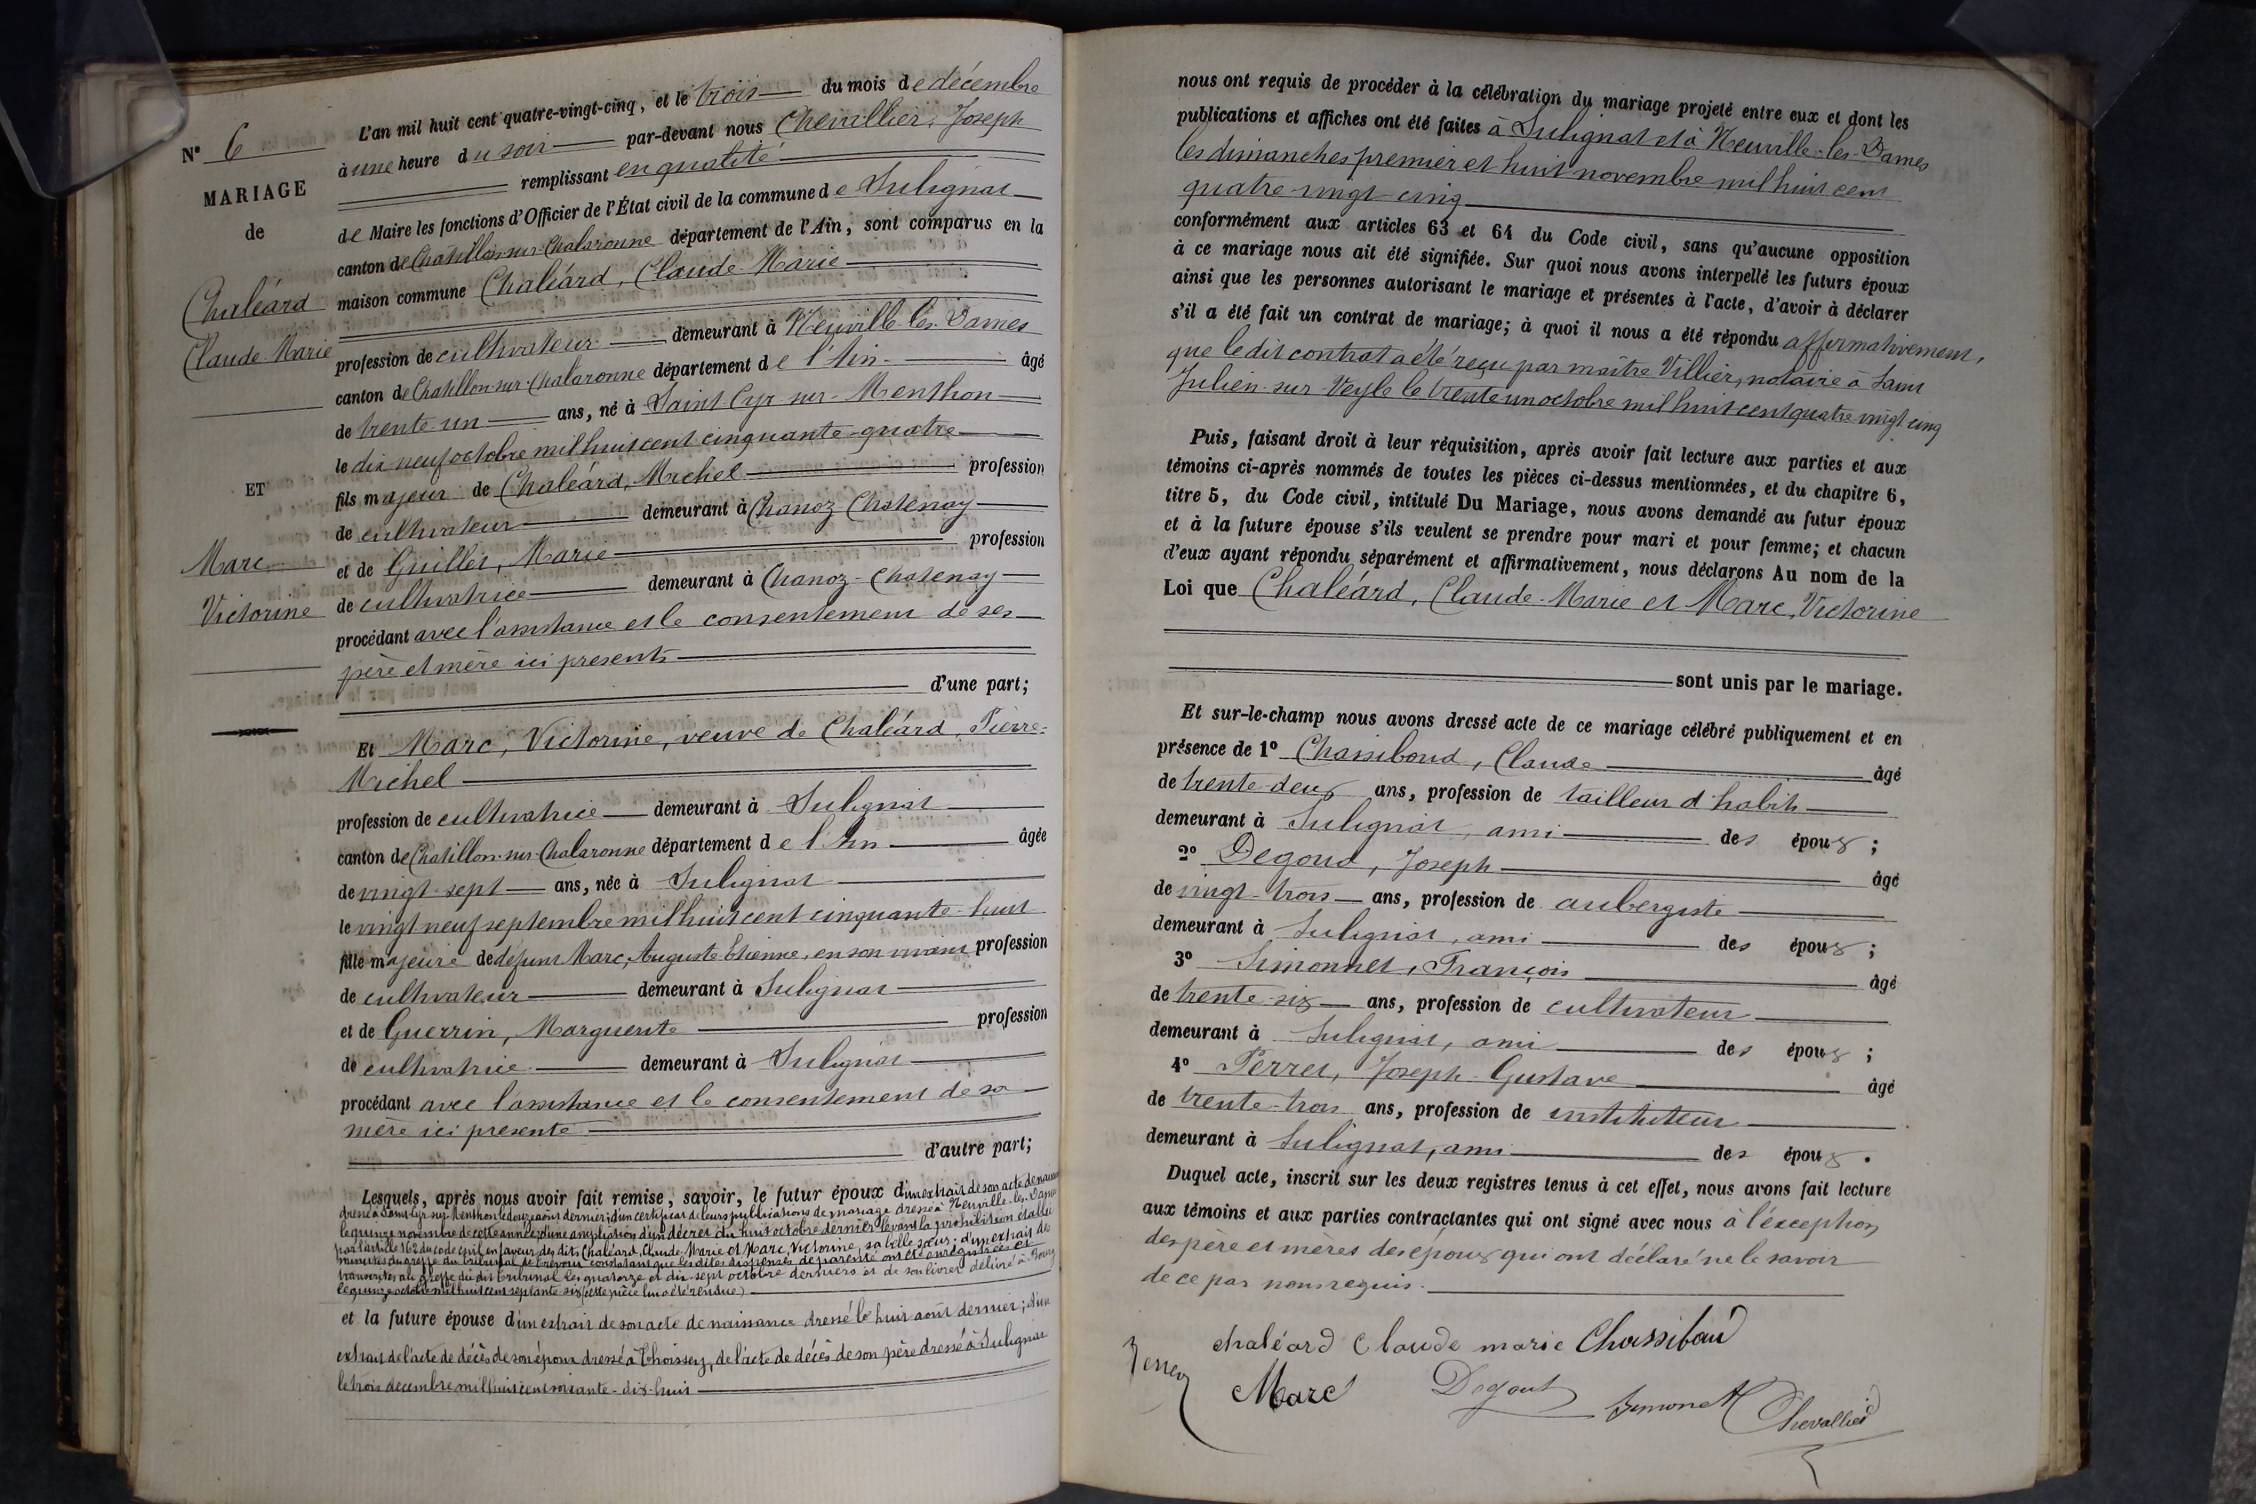 N° 6
MARIAGE
de
Chaléard
Claude-Marie
ET
Marc
Victorine
L'an mil huit cent quatre-vingt-cinq, et le trois du mois de décembre
à une heure du soir par-devant nous Chevallier, Joseph
remplissant en qualité
de Maire les fonctions d'Officier de l'État civil de la commune de Sulignat
canton de Chatillon-sur-Chalaronne département de l'Ain, sont comparus en la
maison commune Chaléard, Claude-Marie
profession de cultivateur demeurant à Neuville-les-Dames
canton de Chatillon-sur-Chalaronne département de l'Ain âgé
de trente-un ans, né à Saint Cyr-sur-Menthon
le dix neuf octobre mil huit cent cinquante-quatre
fils majeur de Chaléard, Michel profession
de cultivateur demeurant à Chanoz-Chatenay
et de Guillet, Marie profession
de cultivatrice demeurant à Chanoz-Chatenay
procédant avec l'assistance et le consentement de ses
père et mère ici présents
d'une part;
Et Marc, Victorine, veuve de Chaléard, Pierre-
Michel
profession de cultivatrice demeurant à Sulignat
canton de Chatillon-sur-Chalaronne département de l'Ain âgée
de vingt-sept ans, née à Sulignat
le vingt neuf septembre mil huit cent cinquante-huit
fille majeure de défunt Marc, Auguste Etienne, en son vivant profession
de cultivateur demeurant à Sulignat
et de Guerrin, Marguerite profession
de cultivatrice demeurant à Sulignat
procédant avec l'assistance et le consentement de sa
mère ici présente
d'autre part;
Lesquels, après nous avoir fait remise, savoir, le futur époux d'un extrait de son acte de naissance
dressé à Saint-Cyr-sur-Menthon le douze août dernier; d'un certificat de leurs publications de mariage dressé à Neuville-les-Dames
le quinze novembre de cette année; d'une ampliation d'un décret du huit octobre dernier levant la prohibition établie
par l'article 162 du code civil en faveur des dits Chaléard, Claude-Marie et Marc, Victorine, sa belle sœur; d'un extrait des
minutes du greffe du tribunal de Trévoux constatant que les dites dispenses de parenté ont été enregistrées et
transcrites au greffe du dit tribunal les quatorze et dix-sept octobre derniers et de son livret délivré à Bourg
le quinze octobre mil huit cent septante-six (cette pièce lui a été rendue)
et la future épouse d'un extrait de son acte de naissance dressé le huit août dernier; d'un
extrait de l'acte de décès de son époux dressé à Thoissey, de l'acte de décès de son père dressé à Sulignat
le trois décembre mil huit cent soixante-dix-huit
nous ont requis de procéder à la célébration du mariage projeté entre eux et dont les
publications et affiches ont été faites à Sulignat et à Neuville-les-Dames
les dimanches premier et huit novembre mil huit cent
quatre-vingt-cinq
conformément aux articles 63 et 64 du Code civil, sans qu'aucune opposition
à ce mariage nous ait été signifiée. Sur quoi nous avons interpellé les futurs époux
ainsi que les personnes autorisant le mariage et présentes à l'acte, d'avoir à déclarer
s'il a été fait un contrat de mariage; à quoi il nous a été répondu affirmativement,
que le dit contrat a été reçu par maître Villier, notaire à Saint
Julien-sur-Veyle le trente un octobre mil huit cent quatre vingt cinq
Puis, faisant droit à leur réquisition, après avoir fait lecture aux parties et aux
témoins ci-après nommés de toutes les pièces ci-dessus mentionnées, et du chapitre 6,
titre 5, du Code civil, intitulé Du Mariage, nous avons demandé au futur époux
et à la future épouse s'ils veulent se prendre pour mari et pour femme; et chacun
d'eux ayant répondu séparément et affirmativement, nous déclarons Au nom de la
Loi que Chaléard, Claude-Marie et Marc, Victorine
sont unis par le mariage.
Et sur-le-champ nous avons dressé acte de ce mariage célébré publiquement et en
présence de 1° Chassiboud, Claude âgé
de trente-deux ans, profession de tailleur d'habits
demeurant à Sulignat, ami des époux;
2° Degoud, Joseph âgé
de vingt-trois ans, profession de aubergiste
demeurant à Sulignat, ami des époux;
3° Simonnet, François âgé
de trente-six ans, profession de cultivateur
demeurant à Sulignat, ami des époux;
4° Perret, Joseph-Gustave âgé
de trente-trois ans, profession de instituteur
demeurant à Sulignat, ami des époux.
Duquel acte, inscrit sur les deux registres tenus à cet effet, nous avons fait lecture
aux témoins et aux parties contractantes qui ont signé avec nous à l'exception
des père et mères des époux qui ont déclaré ne le savoir
de ce par nous requis.
chaléard claude marie Chassiboud
Perret
Marc Degout Simonet Chevallier